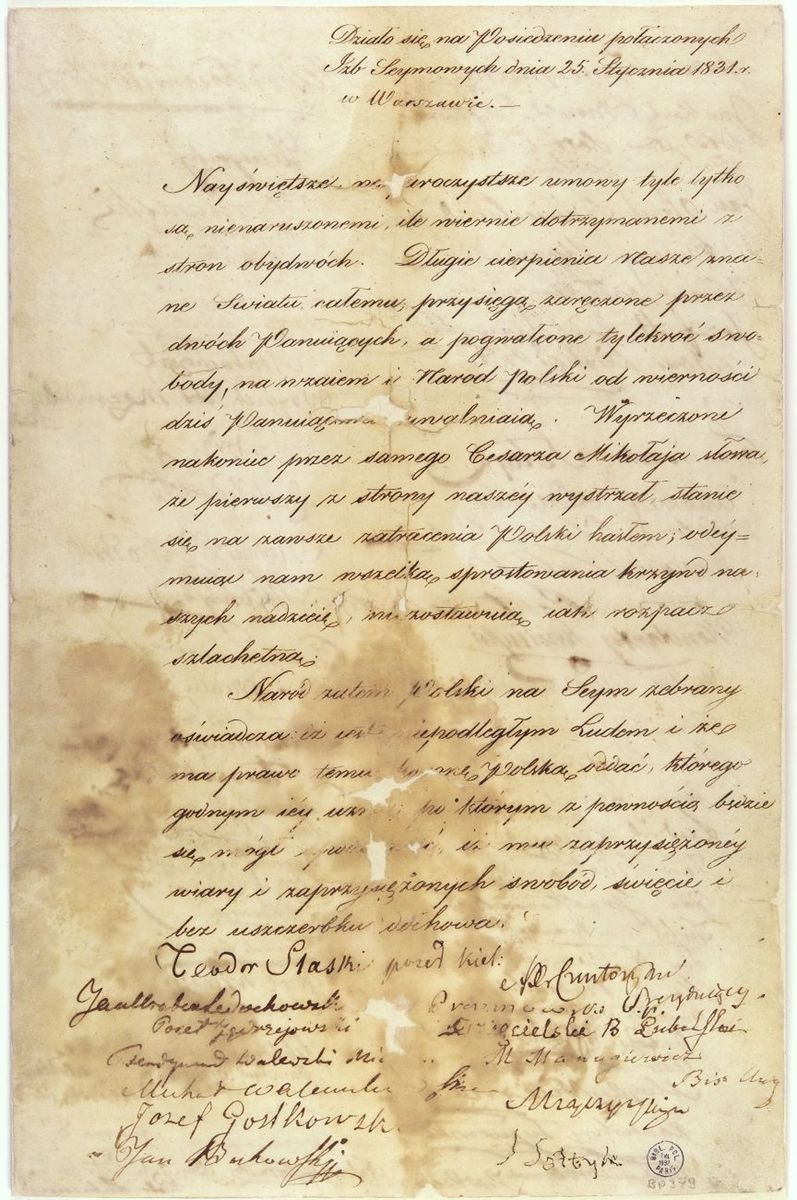 Działo się na Posiedzeniu połączonych
Izb Seymowych dnia 25. Stycznia 1831 r.
w Warszawie. —
Nayświętsze, uroczystsze umowy tyle tylko
są nienaruszonemi, ile wiernie dotrzymanemi z
stron obydwóch. Długie cierpienia Nasze zna-
ne Światu całemu, przysięgą zaręczone przez
dwóch Panuiących, a pogwałcone tylekroć swo-
body, nawzaiem i Naród Polski od wierności
dziś Panuiącemu uwalniaią. Wyrzeczone
nakoniec przez samego Cesarza Mikołaja słowa,
że pierwszy z strony naszéy wystrzał, stanie
się na zawsze zatracenia Polski hasłem; odey-
muiąc nam wszelką sprostowania krzywd na-
szych nadzieię, nie zostawuią iak rozpacz
szlachetną.
Naród zatem Polski na Seym zebrany
oświadcza: iż iest niepodległym Ludem i że
ma prawo temu Polską oddać, którego
godnym iéy uzna, po którym z pewnością będzie
się mógł, iż mu zaprzysiężonéy
wiary i zaprzysiężonych swobód, święcie i
bez uszczerbku dochowa.
Teodor Slaski poseł Kiel:
Jan Ledochowski
Poseł Jędrzejowski
Walewski
Michał
Józef Gostkowski
Jan Bukowski
J Sołtyk
BIBL. POL. PARIS
BP 379